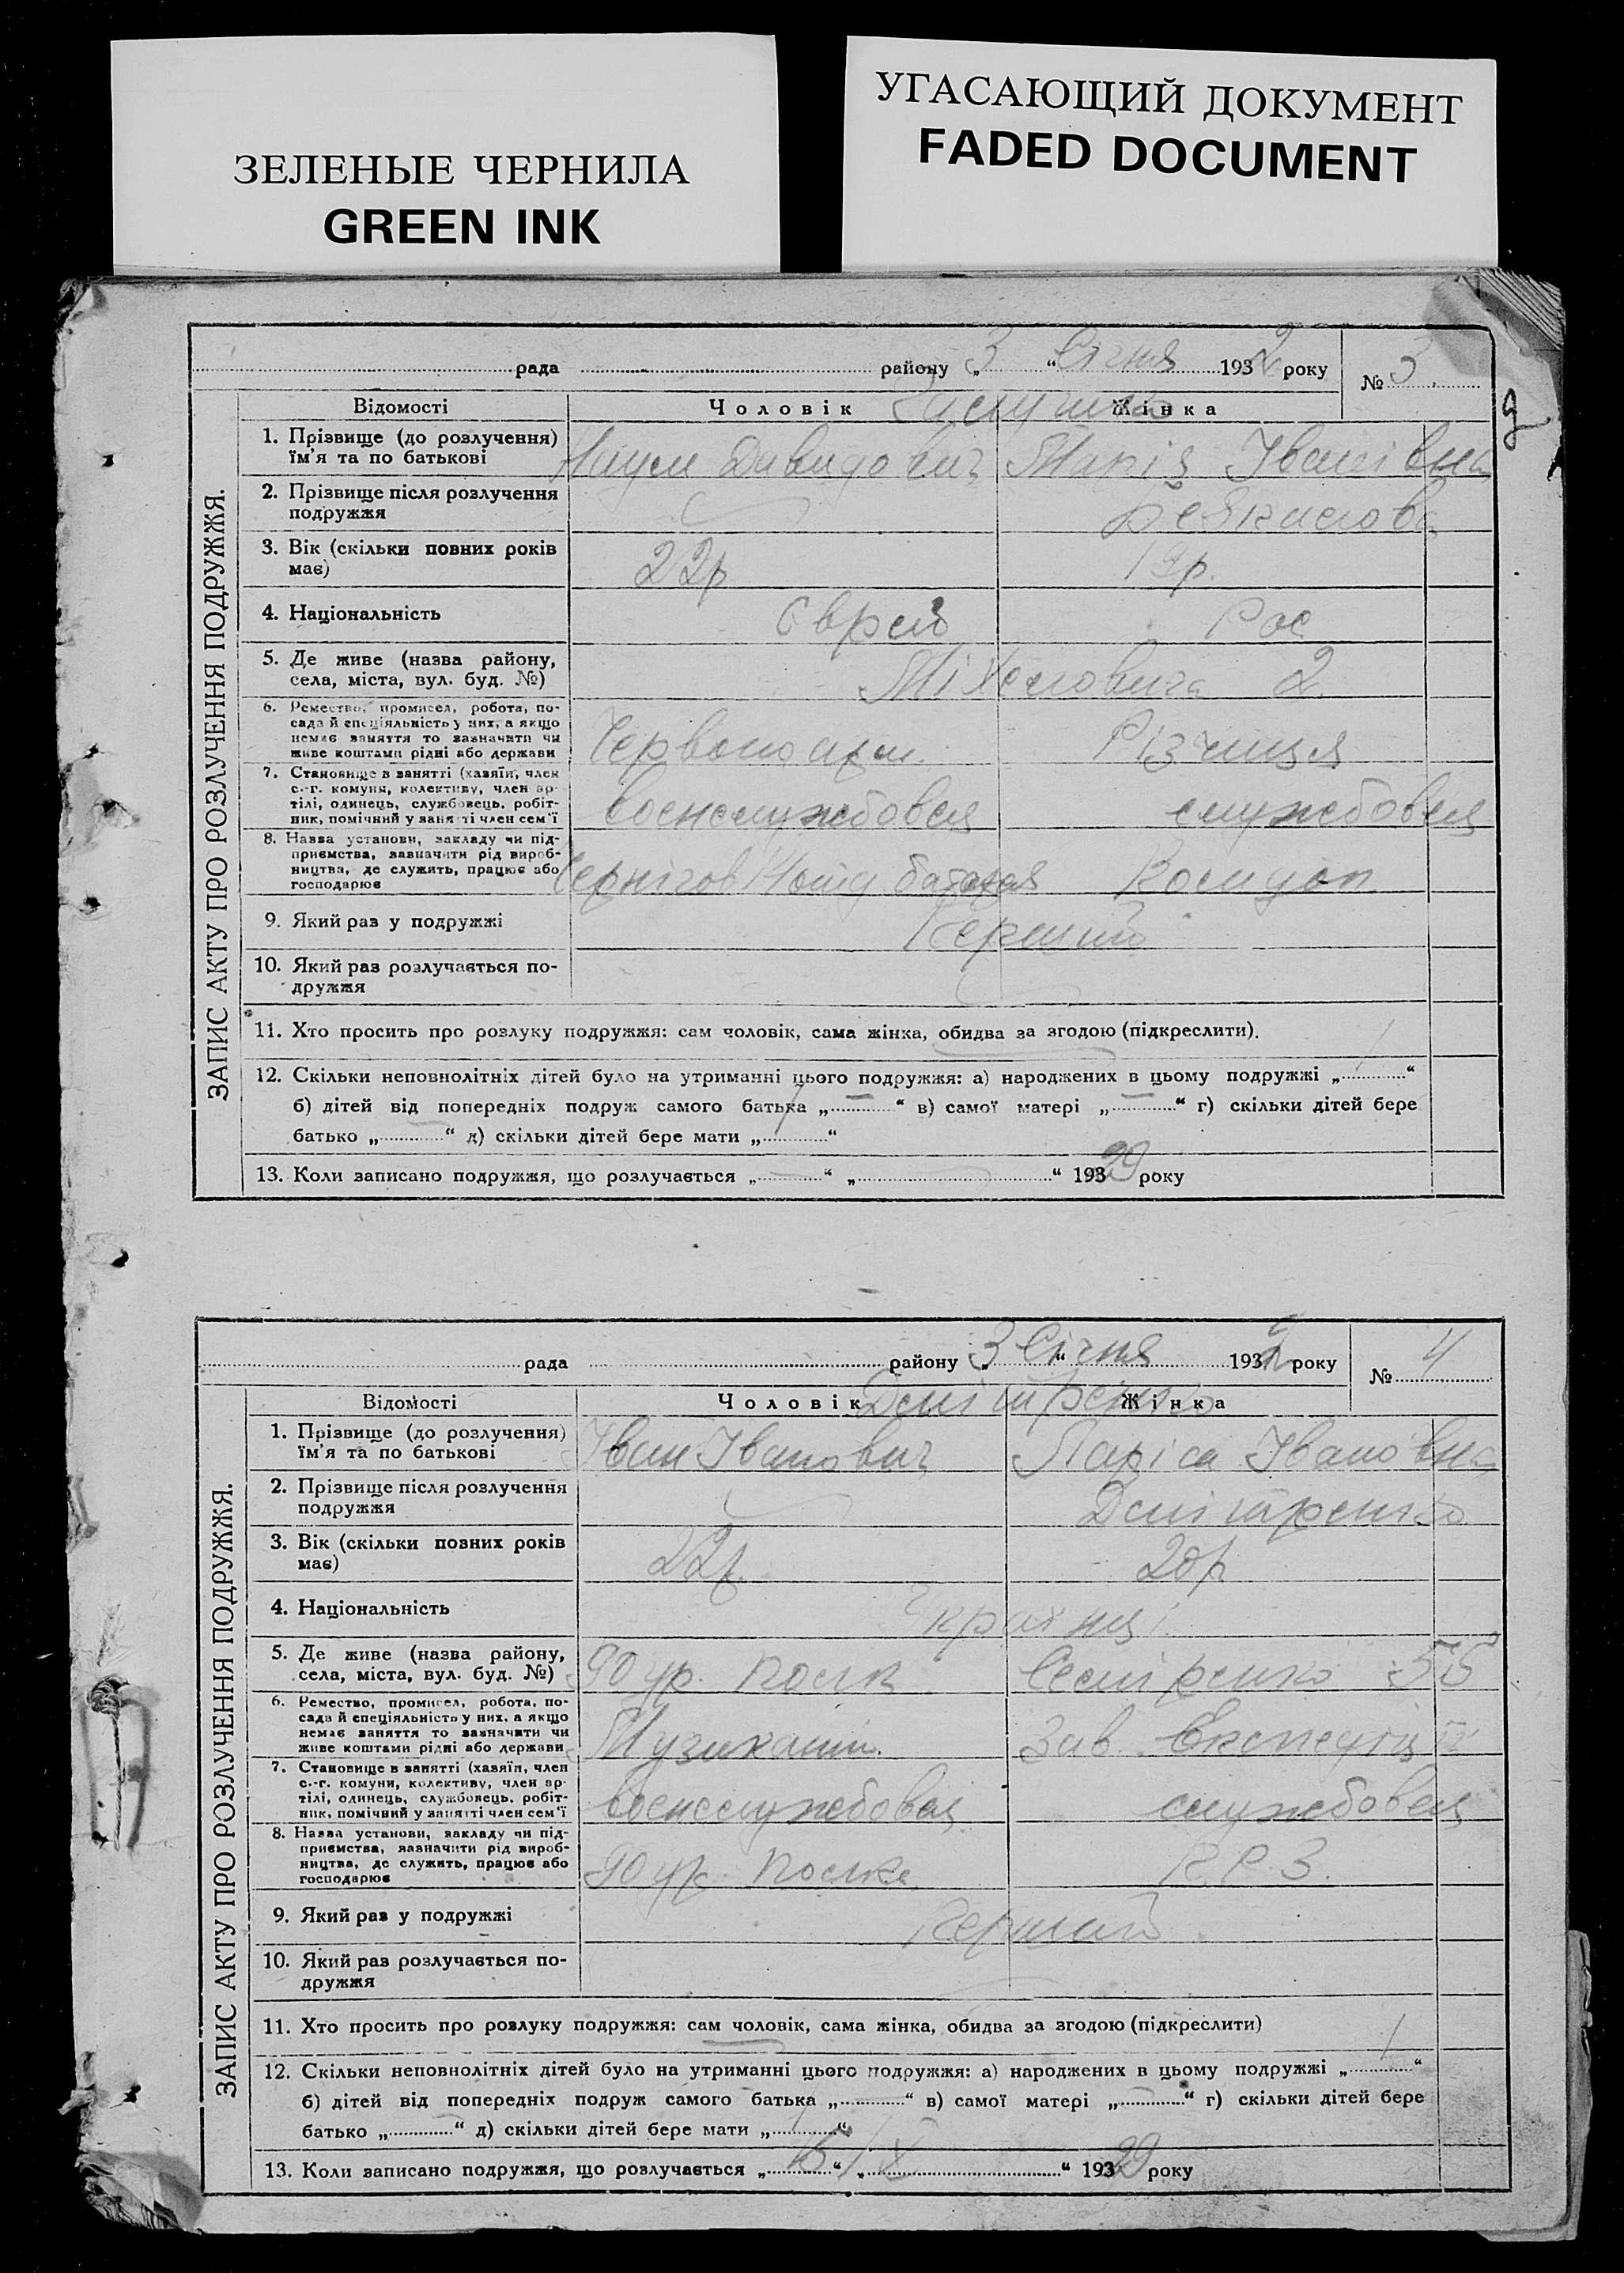 ЗЕЛЕНЫЕ ЧЕРНИЛА
GREEN INK
УГАСАЮЩИЙ ДОКУМЕНТ
FADED DOCUMENT
ЗАПИС АКТУ ПРО РОЗЛУЧЕННЯ ПОДРУЖЖЯ.
рада району „3“ Січня 1932 року № 3.
Відомості Чоловік Жінка
1. Прізвище (до розлучення) ім'я та по батькові Наум Давидович Марія Іванівна
2. Прізвище після розлучення подружжя
3. Вік (скільки повних років має) 22р 19р.
4. Національність Єврей Рос
5. Де живе (назва району, села, міста, вул. буд. №) 2
6. Ремество, промисел, робота, посада й спеціяльність у них, а якщо немає заняття то зазначити чи живе коштами рідні або держави Червоноарм. Різчиця
7. Становище в занятті (хазяїн, член с.-г. комуни, колективу, член артілі, одинець, службовець, робітник, помічний у занятті член сем'ї воєнслужбовец службовец
8. Назва установи, закладу чи підприємства, зазначити рід виробництва, де служить, працює або господарює Чернігов
9. Який раз у подружжі Перший
10. Який раз розлучається подружжя
11. Хто просить про розлуку подружжя: сам чоловік, сама жінка, обидва за згодою (підкреслити).
12. Скільки неповнолітніх дітей було на утриманні цього подружжя: а) народжених в цьому подружжі „1“
б) дітей від попередніх подруж самого батька „—“ в) самої матері „—“ г) скільки дітей бере
батько „—“ д) скільки дітей бере мати „1“
13. Коли записано подружжя, що розлучається „—“ „“ 19329 року
ЗАПИС АКТУ ПРО РОЗЛУЧЕННЯ ПОДРУЖЖЯ.
рада району „3“ Січня 1932 року № 4
Відомості Чоловік Жінка
Демітренко
1. Прізвище (до розлучення) ім'я та по батькові Іван Іванович Ларіса Івановна
2. Прізвище після розлучення подружжя Демітренко
3. Вік (скільки повних років має) 22р. 20р
4. Національність Українці
5. Де живе (назва району, села, міста, вул. буд. №) 90 55
6. Ремество, промисел, робота, посада й спеціяльність у них, а якщо немає заняття то зазначити чи живе коштами рідні або держави Музикант. Зав. Експедиції
7. Становище в занятті (хазяїн, член с.-г. комуни, колективу, член артілі, одинець, службовець, робітник, помічний у занятті член сем'ї воєнслужбовец службовец
8. Назва установи, закладу чи підприємства, зазначити рід виробництва, де служить, працює або господарює 90 К.Р.З.
9. Який раз у подружжі Перший
10. Який раз розлучається подружжя
11. Хто просить про розлуку подружжя: сам чоловік, сама жінка, обидва за згодою (підкреслити)
12. Скільки неповнолітніх дітей було на утриманні цього подружжя: а) народжених в цьому подружжі „1“
б) дітей від попередніх подруж самого батька „—“ в) самої матері „—“ г) скільки дітей бере
батько „—“ д) скільки дітей бере мати „1“
13. Коли записано подружжя, що розлучається „15“ „X“ 19329 року